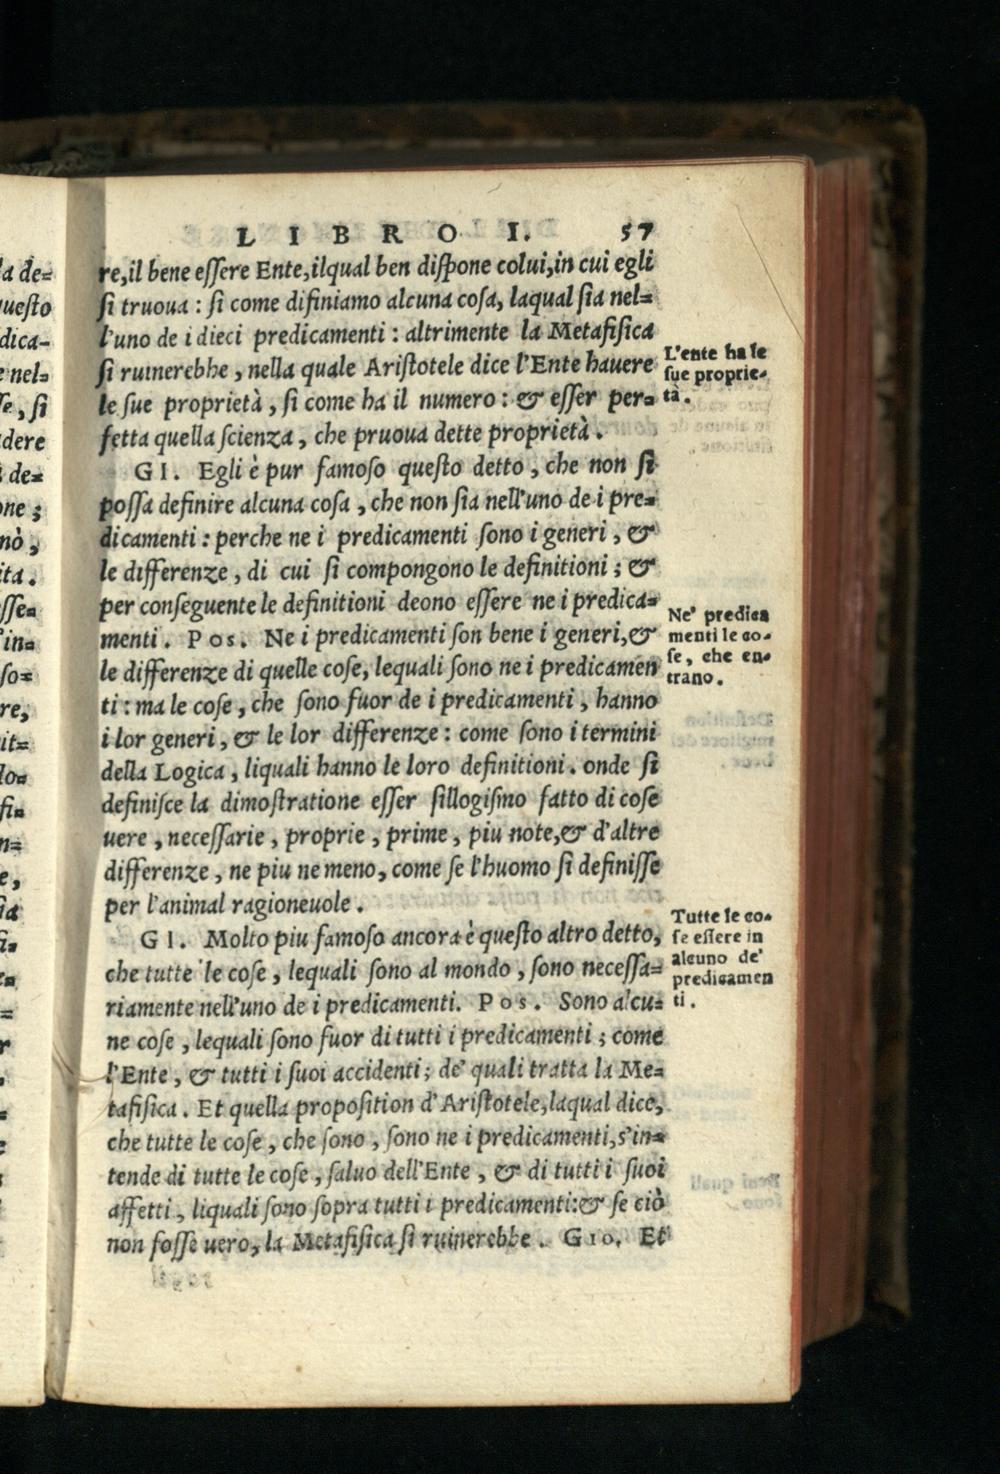 LIBRO I. 57
re,il bene eſſere Ente,ilqual ben diſpone colui,in cui egli
ſi truoua : ſi come difiniamo alcuna coſa, laqual ſia nel=
l'uno de i dieci predicamenti : altrimente la Metafiſica
ſi ruinerebbe , nella quale Ariſtotele dice l'Ente hauere
le ſue proprietà , ſi come ha il numero : & eſſer per=
fetta quella ſcienza , che pruoua dette proprietà .
GI. Egli è pur famoſo queſto detto , che non ſi
poſſa definire alcuna coſa , che non ſia nell'uno de i pre=
dicamenti : perche ne i predicamenti ſono i generi , &
le differenze , di cui ſi compongono le definitioni ; &
per conſeguente le definitioni deono eſſere ne i predica=
menti . Pos. Ne i predicamenti ſon bene i generi,&
le differenze di quelle coſe, lequali ſono ne i predicamen
ti : ma le coſe , che ſono fuor de i predicamenti , hanno
i lor generi , & le lor differenze : come ſono i termini
della Logica , liquali hanno le loro definitioni . onde ſi
definiſce la dimoſtratione eſſer ſillogiſmo fatto di coſe
uere , neceſſarie , proprie , prime , piu note,& d'altre
differenze , ne piu ne meno, come ſe l'huomo ſi definiſſe
per l'animal ragioneuole .
GI. Molto piu famoſo ancora è queſto altro detto,
che tutte le coſe , lequali ſono al mondo , ſono neceſſa=
riamente nell'uno de i predicamenti. Pos. Sono alcu=
ne coſe , lequali ſono fuor di tutti i predicamenti ; come
l'Ente , & tutti i ſuoi accidenti ; de' quali tratta la Me=
tafiſica . Et quella propoſition d'Ariſtotele,laqual dice,
che tutte le coſe , che ſono , ſono ne i predicamenti,s'in=
tende di tutte le coſe , ſaluo dell'Ente , & di tutti i ſuoi
affetti , liquali ſono ſopra tutti i predicamenti:& ſe ciò
non foſſe uero, la Metafiſica ſi ruinerebbe . Gio. Et
L'ente ha le
ſue proprie=
tà .
Ne' predica
menti le co=
ſe , che en=
trano .
Tutte le co=
ſe eſſere in
alcuno de'
predicamen
ti .
la de=
queſto
dica-
e nel=
ſe , ſi
dere
de=
one ;
nò ,
ita .
eſſe=
'in=
ſo=
re,
it=
lo=
fi=
n=
e ,